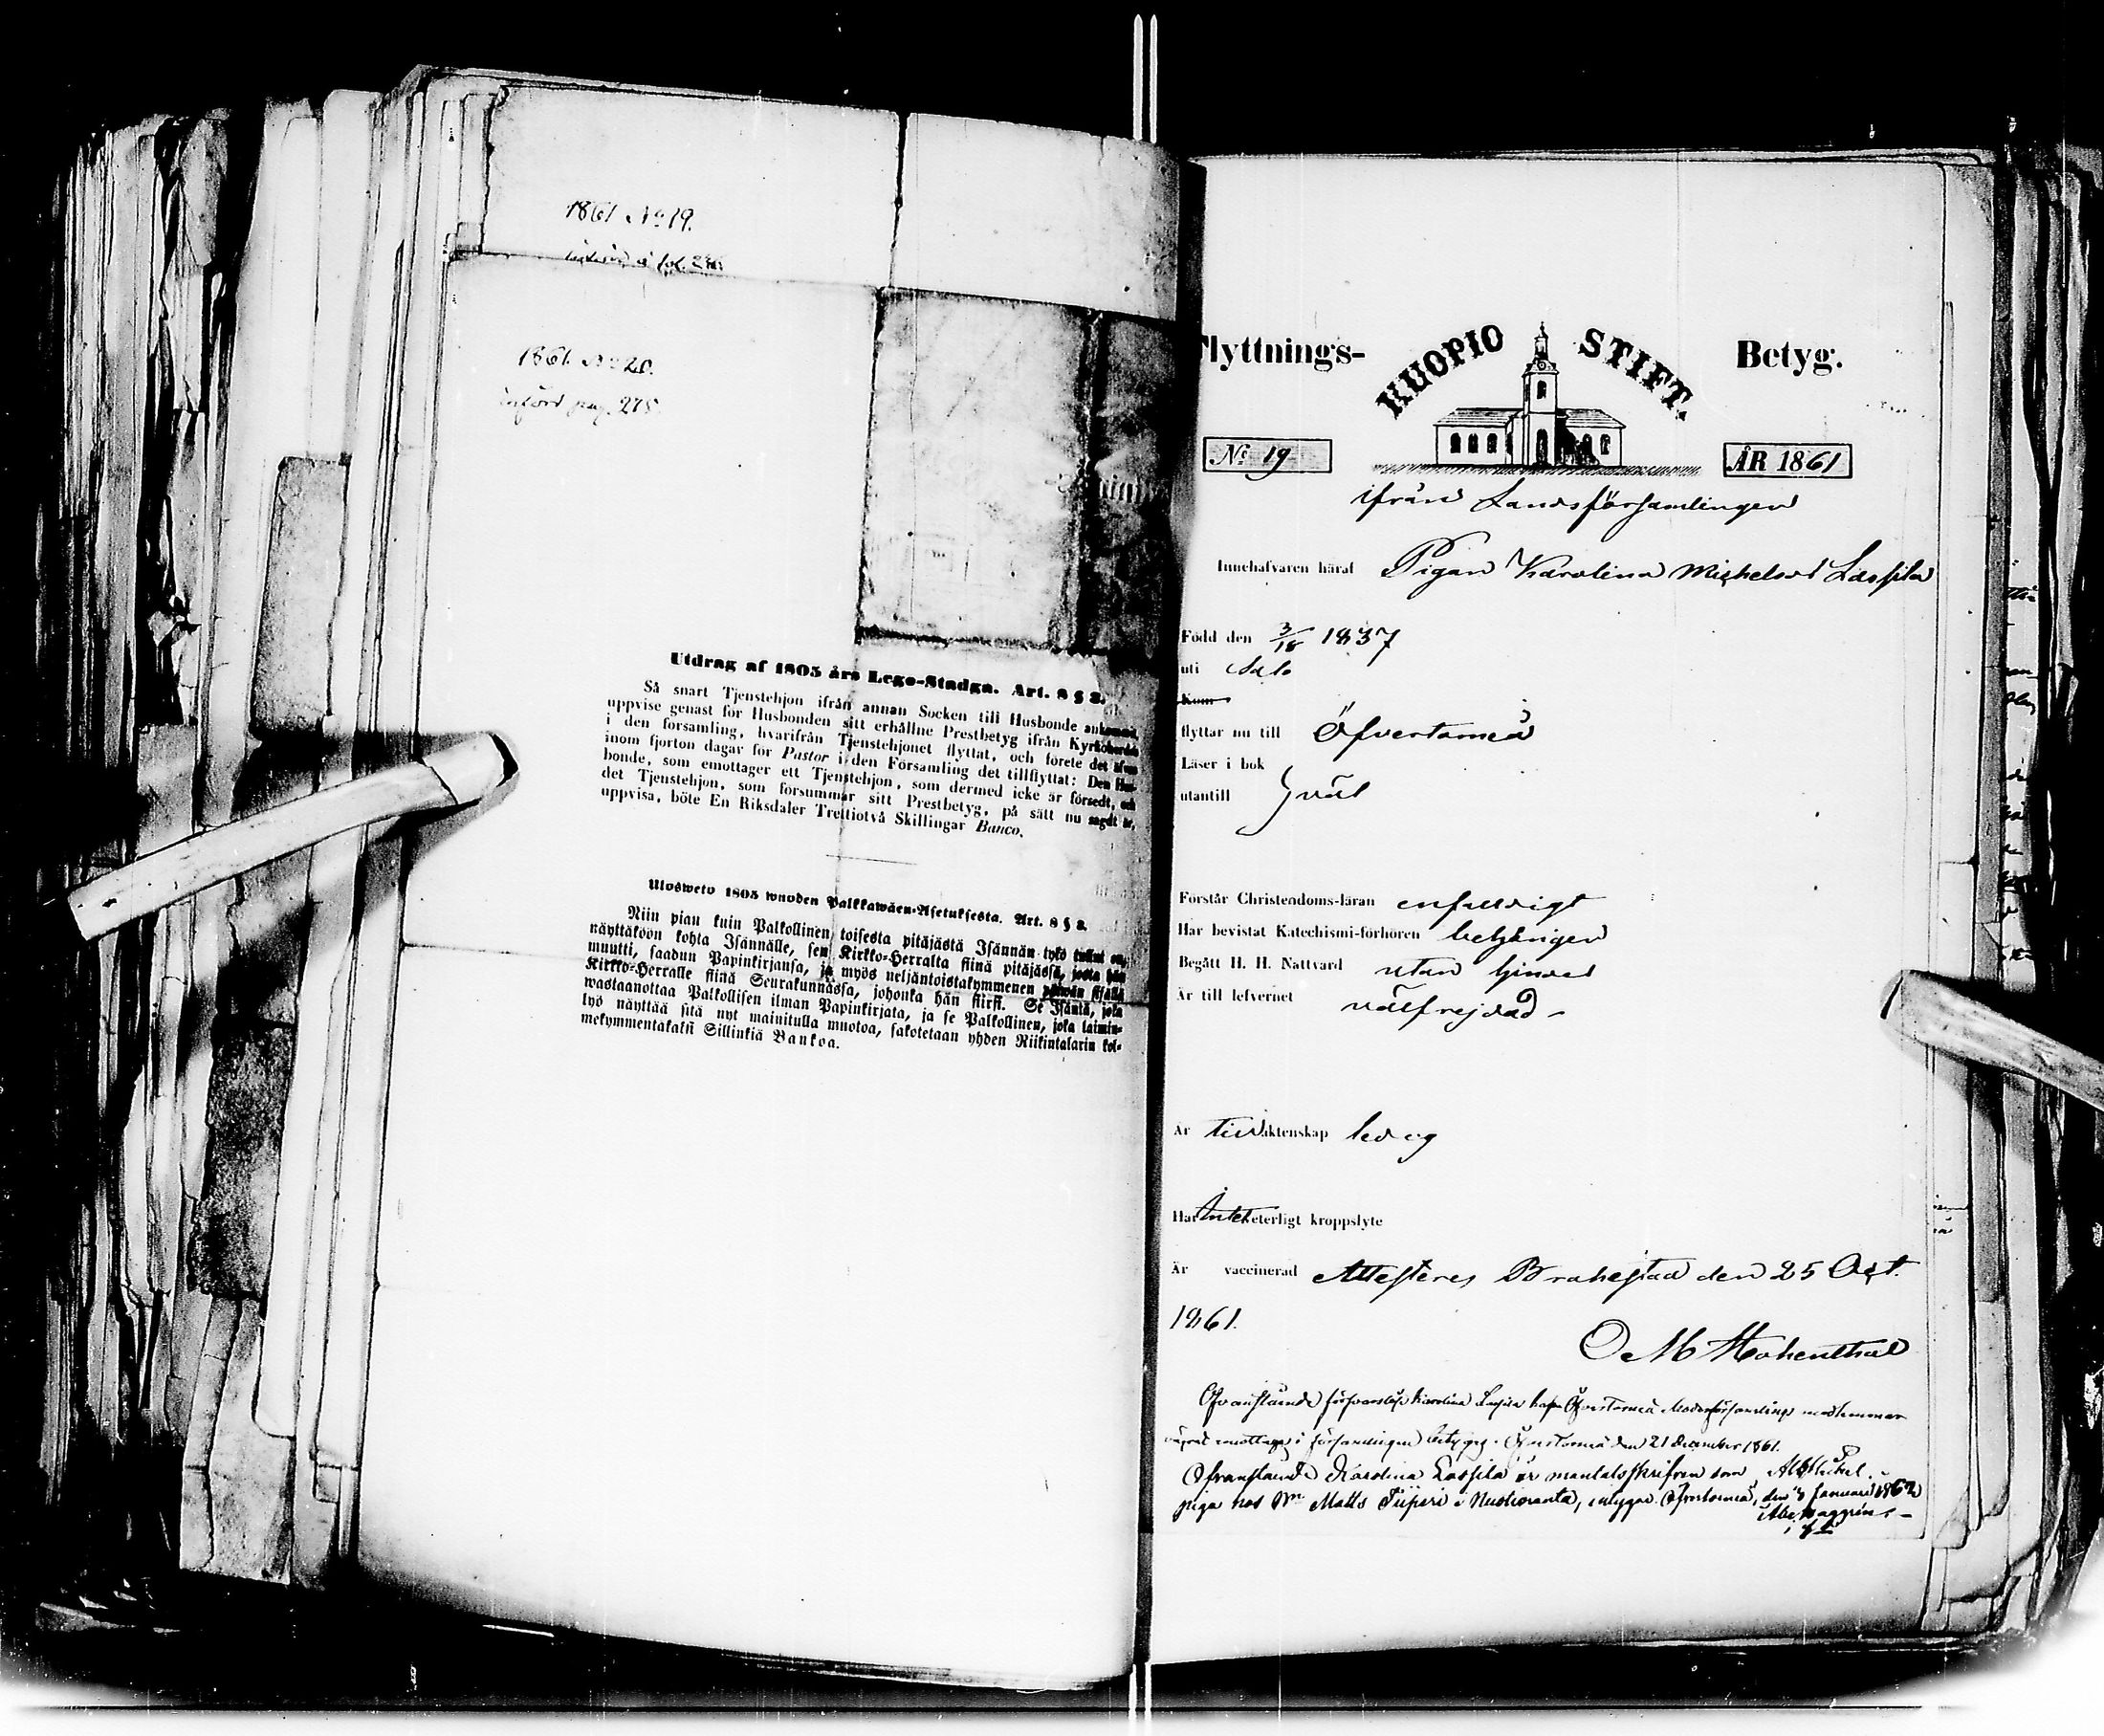 1861 No 19.
införd à fol.
1861. No 20.
införd pag. 275
Utdrag af 1805 års Lego-Stadga. Art. 8 § 2.
Så snart Tjenstehjon ifrån annan Socken till Husbonde ankommit,
uppvise genast för Husbonden sitt erhållne Prestbetyg ifrån Kyrkoherden
i den församling, hvarifrån Tjenstehjonet flyttat, och förete det äfven
inom fjorton dagar för Pastor i den Församling det tillflyttat: Den Hus-
bonde, som emottager ett Tjenstehjon, som dermed icke är försedt, och
det Tjenstehjon, som försummar sitt Prestbetyg, på sätt nu sagdt är,
uppvisa, böte En Riksdaler Trettiotvå Skillingar Banco.
Ulosweto 1805 wuoden Palkkawäen-Asetuksesta. Art. 8 § 2.
Niin pian kuin Palkollinen toisesta pitäjästä Isännän tykö tullut on,
näyttäköön kohta Isännälle, sen Kirkko-Herralta siinä pitäjässä, josta hän
muutti, saadun Papinkirjansa, ja myös neljäntoistakymmenen päiwän sisällä
Kirkko-Herralle siinä Seurakunnassa, johonka hän siirsi. Se Isäntä, joka
wastaanottaa Palkollisen ilman Papinkirjata, ja se Palkollinen, joka laimin-
lyö näyttää sitä nyt mainitulla muotoa, sakotetaan yhden Riikintalarin kol-
mekymmentäkaksi Sillinkiä Bankoa.
Flyttnings- KUOPIO STIFT. Betyg.
No 19 ÅR 1861
ifrån Landsförsamlingen
Innehafvaren häraf Pigan Karolina Michelsd Lassila
Född den 3/18 1837
uti Salo
Kom
flyttar nu till Öfvertorneå
Läser i bok
utantill } väl
Förstår Christendoms-läran enfaldigt
Har bevistat Katechismi-förhören behörigen
Begått H. H. Nattvard utan hinder
Är till lefvernet välfrejdad
Är till äktenskap ledig
Har Intet lekterligt kroppslyte
Är vaccinerad Attesteres Brahestad den 25 Oct.
1861.
O M Hohenthal
Ofvanstående Karolina Lassila Öfvertorneå Moderförsamling
i församlingen betygas. Öfvertorneå den 21 december 1861.
Ofvanstående Karolina Lassila är mantalsskrifven som
piga hos Matts i Nuotioranta, intygar. Öfvertorneå, den 3 Januari 1862